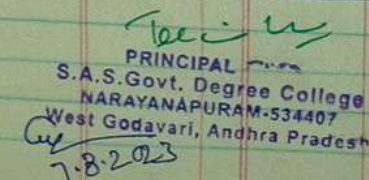 PRINCIPAL
S.A.S.Govt. Degree College
NARAYANAPURAM-534407
West Godavari, Andhra Pradesh
7.8.2023